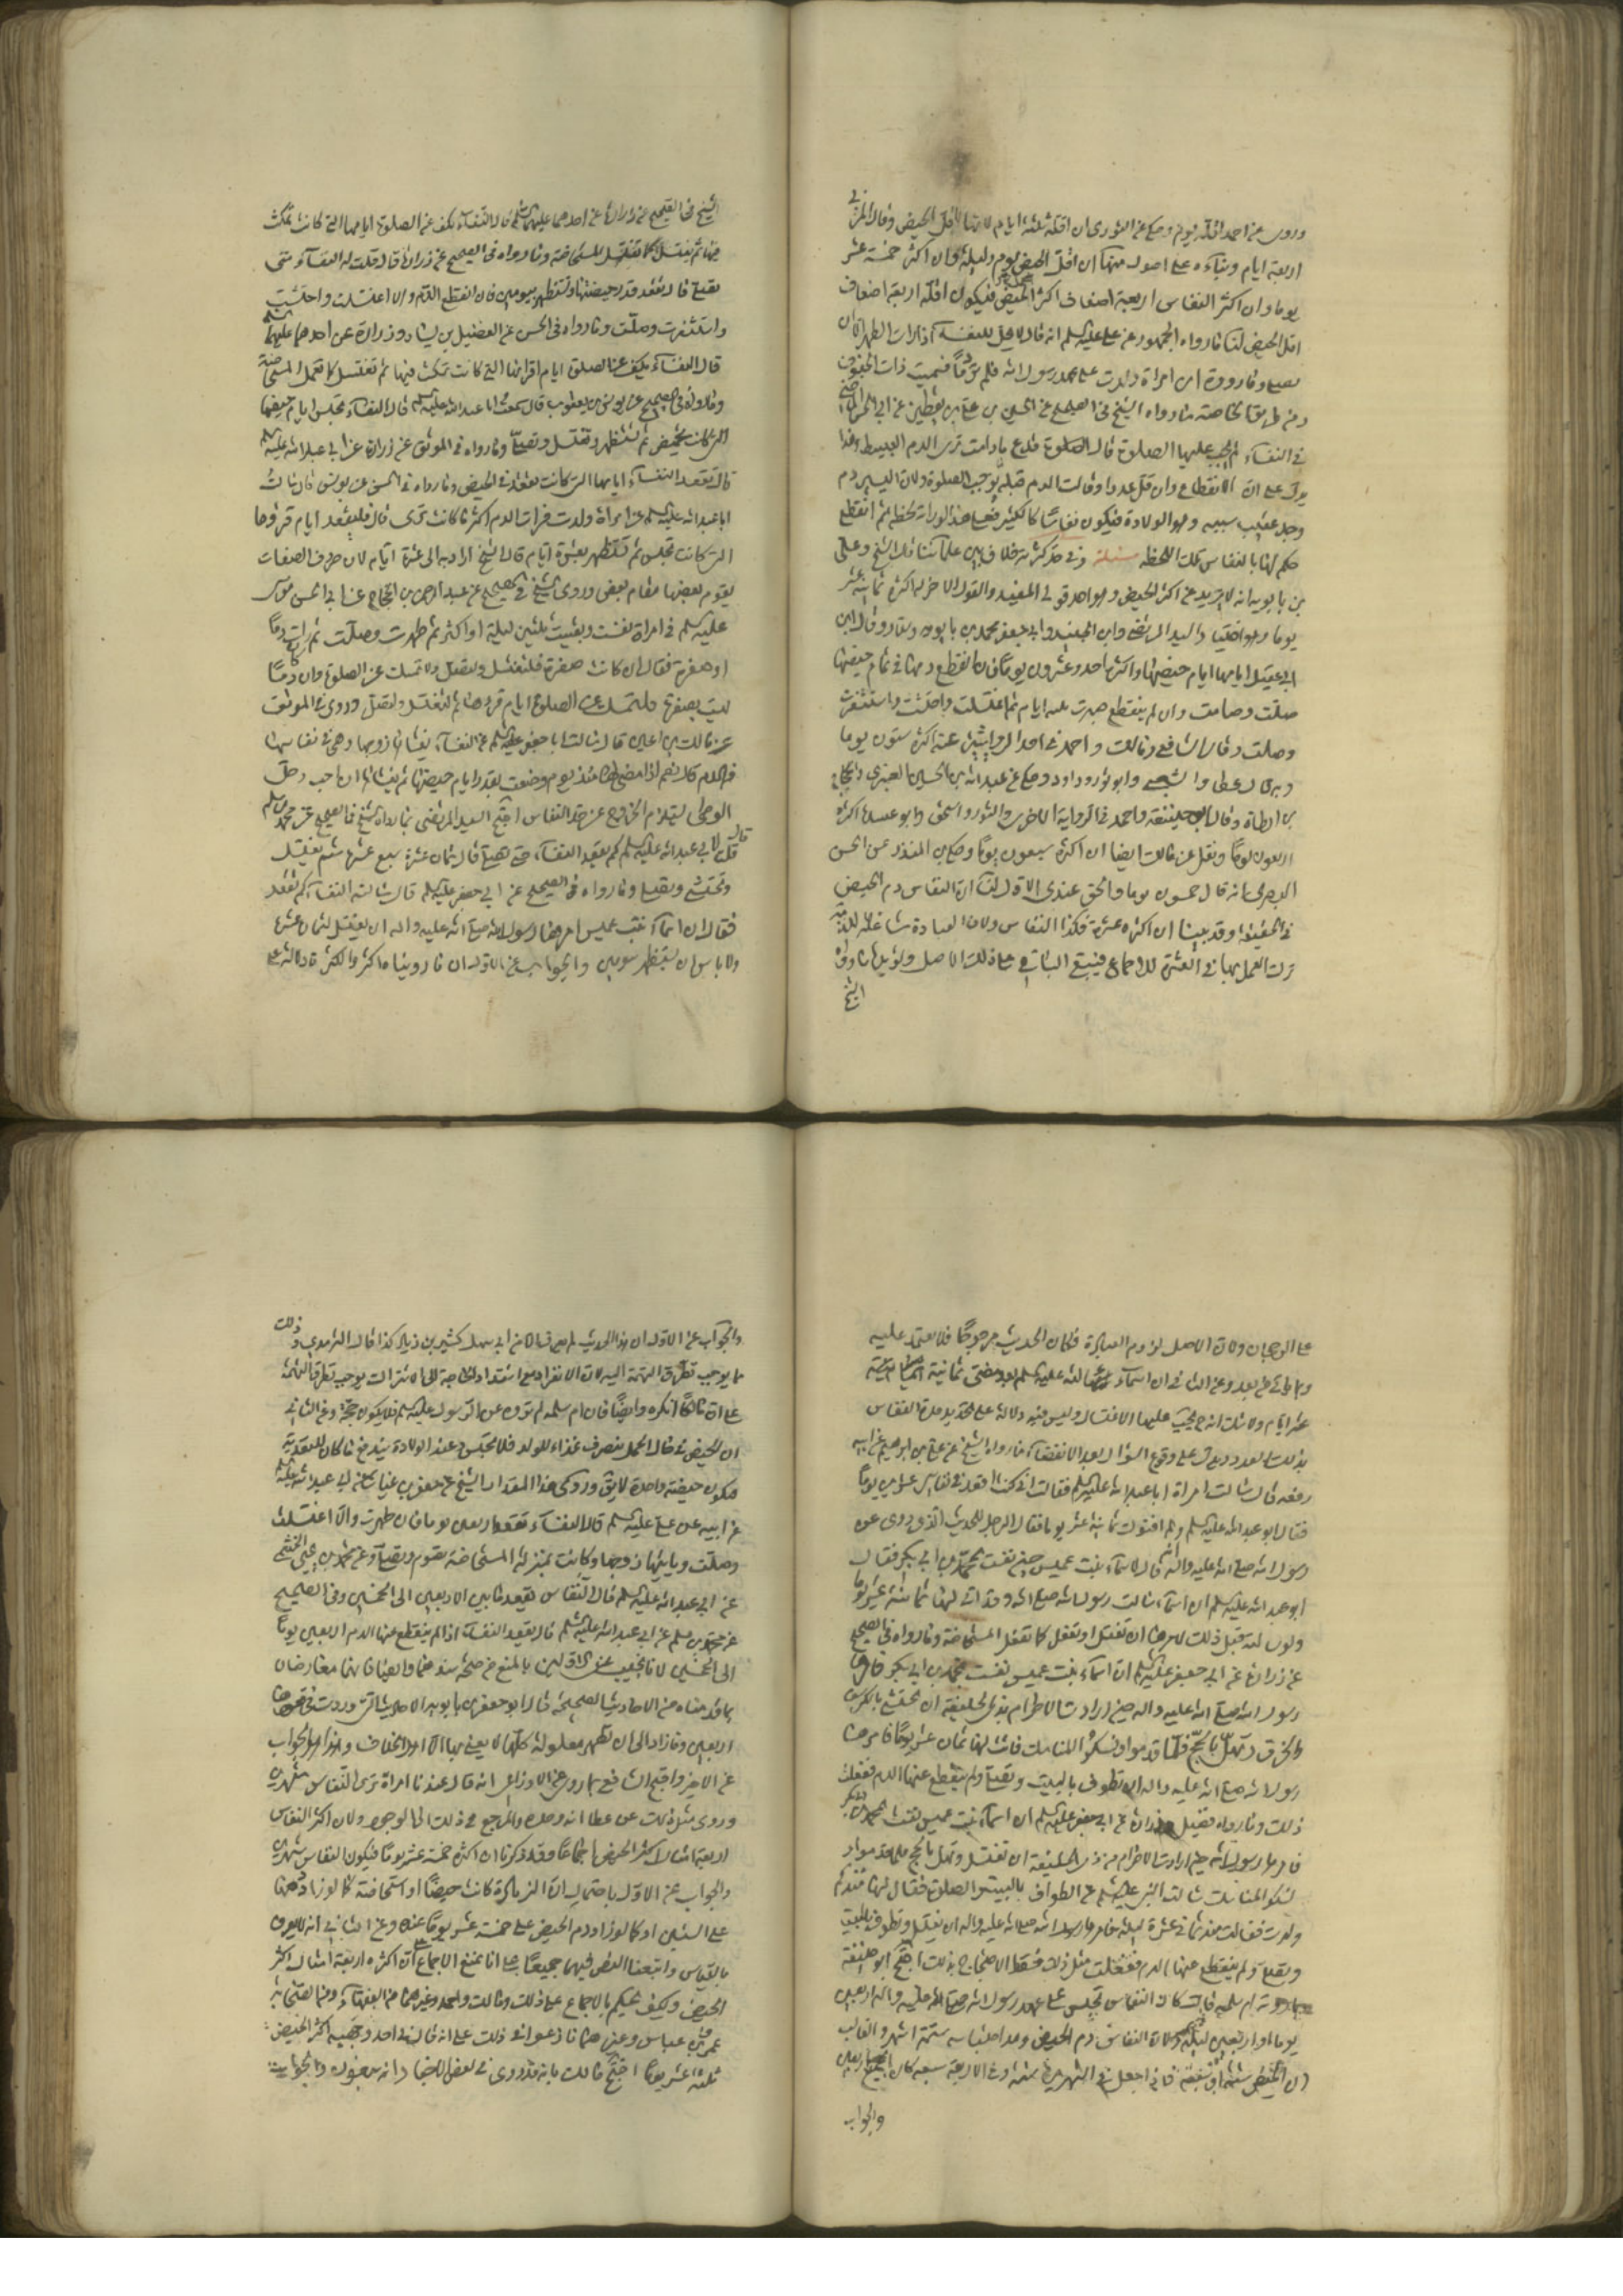 وروى عن احمد اقله يوم وحكى عن الثورى ان اقله ثلثة ايام لانها اقل الحيض وقال المزنى
اربعة ايام وبناء على اصول منها ان اقل الحيض يوم وليلة وان اكثره خمسة عشر
يوما وان اكثر النفاس اربعة اضعاف اكثر الحيض فيكون اقله اربعة اضعاف
اقل الحيض لنا ما رواه الجمهور عن على عليه السلم انه قال لا يحل للنفساء اذا رات الطهر الا ان
تصلى وما رووه ان امراة ولدت على عهد رسول الله فلم تر دما فسميت ذات الجفوف
ومن طريق الخاصة ما رواه الشيخ فى الصحيح عن الحسين بن على بن يقطين عن ابى الحسن الماضى
فى النفساء كم يجب عليها الصلوة قال تدع الصلوة مادامت ترى الدم العبيط وهذا
يدل على ان الانقطاع وان قل عددا وقالت الدم قبله يوجب الصلوة ولان اليسير دم
وجد عقيب سببه وهو الولادة فيكون نفاسا كالكثير فعلى هذا لو راته لحظة ثم انقطع
حكم لها بالنفاس تلك اللحظه مسئلة وفى حد كثرته خلاف بين علمائنا قال الشيخ وعلى
بن بابويه انه لا يزيد عن اكثر الحيض وهو احد قولى المفيد والقول الاخر له اكثره ثمانية عشر
يوما وهو اختيار السيد المرتضى وابن الجنيد وابى جعفر محمد بن بابويه وسلار وقال ابن
ابى عقيل ايامها ايام حيضها واكثرها احد وعشرون يوما فان انقطع دمها فى تمام حيضها
صلت وصامت وان لم ينقطع صبرت ثلثة ايام ثم اغتسلت واحتشت واستثفرت
وصلت وقال الشافعى ومالك واحمد فى احد الروايتين عنه اكثره ستون يوما
وبه قال عطا والشعبى وابو ثور وداود وحكى عن عبد الله بن الحسين العنبرى والحجاج
بن ارطاة وقال ابو حنيفة واحمد فى الرواية الاخرى والثورى واسحق وابو عبيد اكثره
اربعون يوما ونقل عن مالك ايضا ان اكثره سبعون يوما وحكى بن المنذر عن الحسن
البصرى انه قال خمسون يوما والحق عندى الاول لنا ان النفاس دم الحيض
فى الحقيقة وقد بينا ان اكثره عشرة فكذا النفاس ولان العبادة شاغلة للذمة
ترك العمل بها فى العشرة للاجماع فيبقى الباقى على ذلك الاصل ويؤيده ما رواه
الشيخ
الشيخ فى الصحيح عن زرارة عن احدهما عليهما السلم قال النفساء تكف عن الصلوة ايامها التى كانت تمكث
فيها ثم تغتسل كما تغتسل المستحاضة وما رواه فى الصحيح عن زرارة قال قلت له النفساء متى
تصلى قال تقعد قدر حيضتها وتستظهر بيومين فان انقطع الدم والا اغتسلت واحتشت
واستثفرت وصلت وما رواه فى الحسن عن الفضيل بن يسار وزرارة عن احدهما عليهما السلم
قال النفساء تكف عن الصلوة ايام اقرائها التى كانت تمكث فيها ثم تغتسل كما تعمل المستحاضة
وما رواه فى الصحيح عن يونس بن يعقوب قال سمعت ابا عبد الله عليه السلم قال النفساء تجلس ايام حيضها
التى كانت تحيض ثم تستظهر وتغتسل وتصلى وما رواه فى الموثق عن زرارة عن ابى عبد الله عليه السلم
قال تقعد النفساء ايامها التى كانت تقعد فى الحيض وما رواه فى الحسن عن يونس قال سالت
ابا عبد الله عليه السلم عن امراة ولدت فرات الدم اكثر مما كانت ترى قال فلتقعد ايام قرؤها
التى كانت تجلس ثم تستظهر بعشرة ايام قال الشيخ اراد به الى عشرة ايام لان حروف الصفات
يقوم بعضها مقام بعض وروى الشيخ فى الصحيح عن عبد الرحمن بن الحجاج عن ابى الحسن موسى
عليه السلم فى امراة نفست وبقيت ثلثين ليلة او اكثر ثم طهرت وصلت ثم رات دما
او صفرة فقال ان كانت صفرة فلتغتسل ولتصل ولا تمسك عن الصلوة وان كان دما
ليست بصفرة فلتمسك عن الصلوة ايام قرؤها ثم لتغتسل ولتصل وروى فى الموثق
عن مالك بن اعين قال سالت ابا جعفر عليه السلم عن النفساء يغشاها زوجها وهى فى نفاسها
من الدم قال نعم اذا مضى لها منذ يوم وضعت بقدر ايام حيضها ثم يغشاها ان احب وحل
الوطى يستلزم الخروج عن حد النفاس احتج السيد المرتضى بما رواه الشيخ فى الصحيح عن محمد بن مسلم
قال قلت لابى عبد الله عليه السلم كم تقعد النفساء حتى تصلى قال ثمان عشرة سبع عشرة ثم تغتسل
وتحتشى وتصلى وما رواه فى الصحيح عن ابى جعفر عليه السلم قال سالته النفساء كم تقعد
فقال ان اسماء بنت عميس امرها رسول الله صلى الله عليه واله ان تغتسل لثمان عشرة
ولا باس ان تستظهر بيومين والجواب عن الاول ان ما روينا اكثر والكثرة دالة على
على الرجحان ولان الاصل لزوم العبادة فكان الحديث مرجوحا فلا يعتمد عليه
وعن الثانى ان اسماء سالته عليه السلم بعد مضى ثمانية
عشر ايام ولا شك انه يجب عليها الاغتسال وليس فيه دلالة على تحديد مدة النفاس
بذلك العدد ويدل على وقوع السؤال بعد الانقضاء ما رواه الشيخ عن على بن ابرهيم عن ابيه
رفعه قال سالت امراة ابا عبد الله عليه السلم فقالت انى كنت اقعد فى نفاسى عشرين يوما
فقال ابو عبد الله عليه السلم ولم افتوك ثمانية عشر يوما فقال الرجل للحديث الذى روى عن
رسول الله صلى الله عليه واله انه قال لاسماء بنت عميس حين نفست بمحمد بن ابى بكر فقال
ابو عبد الله عليه السلم ان اسماء سالت رسول الله صلى الله وقد اتى لها ثمانية عشر يوما
ولو سالته قبل ذلك لامرها ان تغتسل وتفعل كما تفعل المستحاضة وما رواه فى الصحيح
عن زرارة عن ابى جعفر عليه السلم ان اسماء بنت عميس نفست بمحمد بن ابى بكر فامرها
رسول الله صلى الله عليه واله حين ارادت الاحرام بذى الحليفة ان تحتشى بالكرسف
والخرق وتهل بالحج فلما قدموا ونسكوا المناسك فاتت لها ثمان عشر يوما فامرها
رسول الله صلى الله عليه واله ان تطوف بالبيت وتصلى ولم ينقطع عنها الدم ففعلت
ذلك وما رواه فضيل وزرارة عن ابى جعفر عليه السلم ان اسماء بنت عميس نفست بمحمد بن ابى بكر
فامرها رسول الله حين ارادت الاحرام من ذى الحليفة ان تغتسل وتهل بالحج فلما قدموا و
نسكوا المناسك سالت النبى عليه السلم عن الطواف بالبيت والصلوة فقال لها منذ كم
ولدت فقالت منذ ثمانى عشرة ليلة فامرها رسول الله صلى الله عليه واله ان تغتسل وتطوف بالبيت
وتصلى ولم ينقطع عنها الدم ففعلت مثل ذلك فسقط الاحتجاج بذلك احتج ابو حنيفة
بما روته ام سلمة قالت كانت النفساء تجلس على عهد رسول الله صلى الله عليه واله اربعين
يوما او اربعين ليلة ولان النفاس دم الحيض ومدة احتباسه ستة اشهر والغالب
ان الحيض ستة او سبعة فاذا اجعل فى الشهرين ستة وفى الاربعة سبعة كان الجميع اربعين
والجواب
والجواب عن الاول ان هذا الحديث لم يعرف الا من ابى سهل كثير بن زياد كذا قال الترمذى وذلك
مما يوجب تطرق التهمة اليه لان الانفراد مع اشتداد الحاجة الى الاشتراك يوجب تطرق التهمة
على ان مالكا انكره وايضا فان ام سلمة لم تروه عن الرسول عليه السلم فلا يكون حجة وعن الثانى
ان الحيض فى حال الحمل ينصرف غذاء للولد فلا يحتبس وعند الولادة يندفع ما كان للتغذية
فيكون حيضة واحدة لا يق وروى هذا المقدار الشيخ عن حفص بن غياث عن ابى عبد الله عليه السلم
عن ابيه عن على عليه السلم قال النفساء تقعد اربعين يوما فان طهرت والا اغتسلت
وصلت وياتيها زوجها وكانت بمنزلة المستحاضة تصوم وتصلى وعن محمد بن يحيى الخثعمى
عن ابى عبد الله عليه السلم قال النفاس تقعد ما بين الاربعين الى الخمسين وفى الصحيح
عن محمد بن مسلم عن ابى عبد الله عليه السلم قال تقعد النفساء اذا لم ينقطع عنها الدم اربعين يوما
الى الخمسين لانا نجيب عن الاولين بالمنع من صحة سندهما وايضا فانهما معارضان
بما قدمناه من الاحاديث الصحيحة قال ابو جعفر بن بابويه الاحاديث التى وردت فى قعودها
اربعين وما زاد الى ان تطهر معلولة كلها لا يفتى بها الا اهل الخلاف وهذا هو الجواب
عن الاخير واحتج الشافعى بما روى عن الاوزاعى انه قال عندنا امراة ترى النفاس شهرين
وروى مثل ذلك عن عطا انه وجده والمرجع فى ذلك الى الوجود ولان اكثر النفاس
اربعة امثال اكثر الحيض اجماعا وقد ذكرنا ان اكثره خمسة عشر يوما فيكون النفاس شهرين
والجواب عن الاول باحتمال ان الزيادة كانت حيضا او استحاضة كما لو زاد دمها
على الستين او كما لو زاد دم الحيض على خمسة عشر يوما عنده وعن الثانى انه لا يعرف
بالقياس واتبعنا النص فيهما جميعا على انا نمنع الاجماع على ان اكثره اربعة امثال اكثر
الحيض وكيف تحكم بالاجماع على ذلك ومالك واحمد وغيرهما من الفقهاء ومن الصحابة
عمر وبن عباس وغيرهما نازعوا فى ذلك على انه قال فى احد وجهيه اكثر الحيض
ثلثة عشر يوما احتج مالك بانه قد روى فى بعض الاخبار انه سبعون والجواب